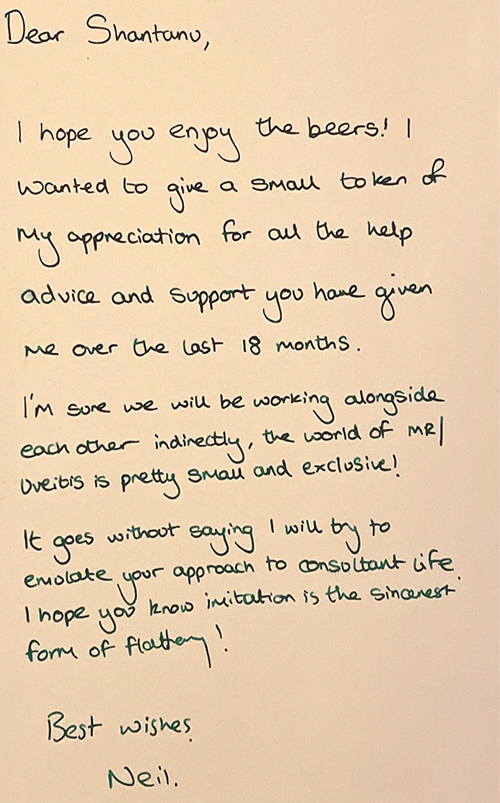 Dear Shantanu,
I hope you enjoy the beers! I
wanted to give a small token of
my appreciation for all the help
advice and support you have given
me over the last 18 months.
I'm sure we will be working alongside
each other indirectly, the world of MR/
Uveitis is pretty small and exclusive!
It goes without saying I will try to
emulate your approach to consultant life.
I hope you know imitation is the sincerest
form of flattery!
Best wishes
Neil.